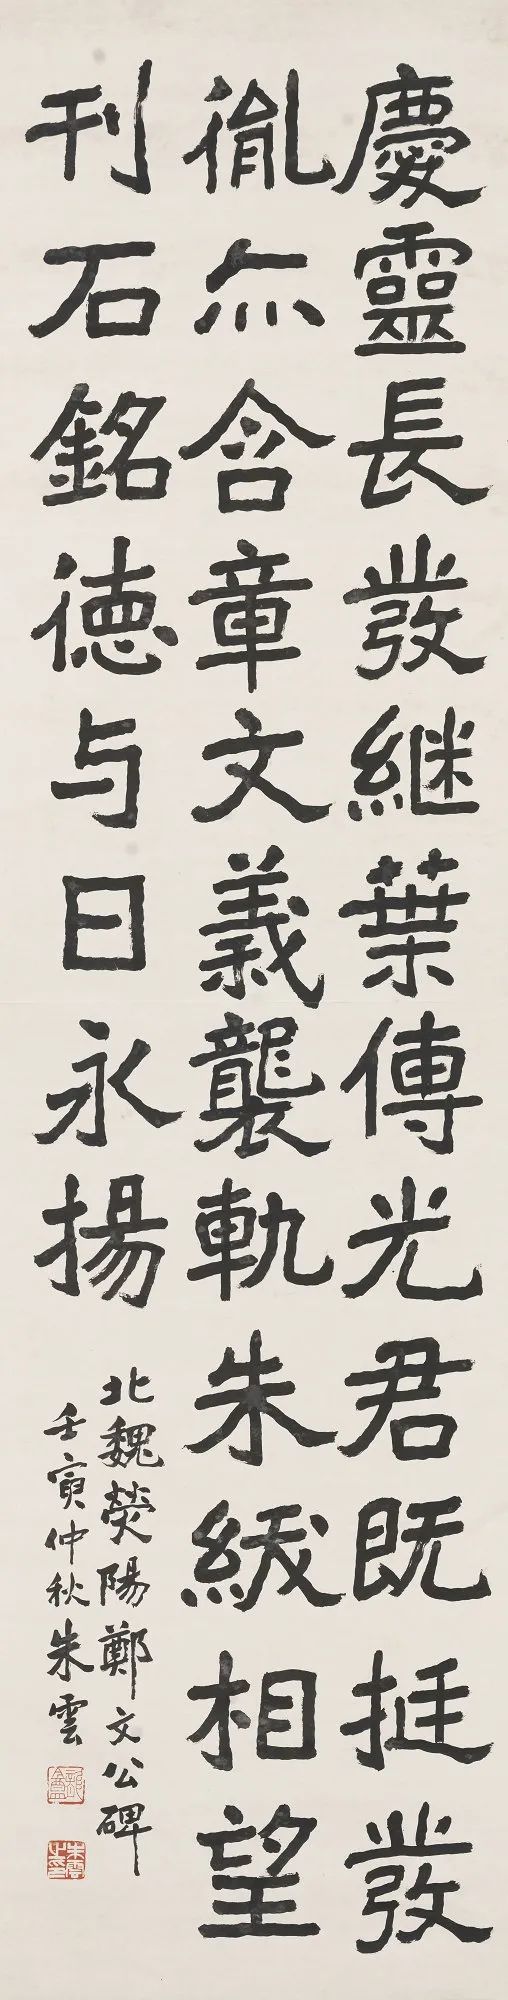 慶靈長發继葉傳光君既挺發
胤亦含章文義襲軌朱紱相望
刊石銘德与日永揚
北魏熒陽鄭文公碑
壬寅仲秋朱雲